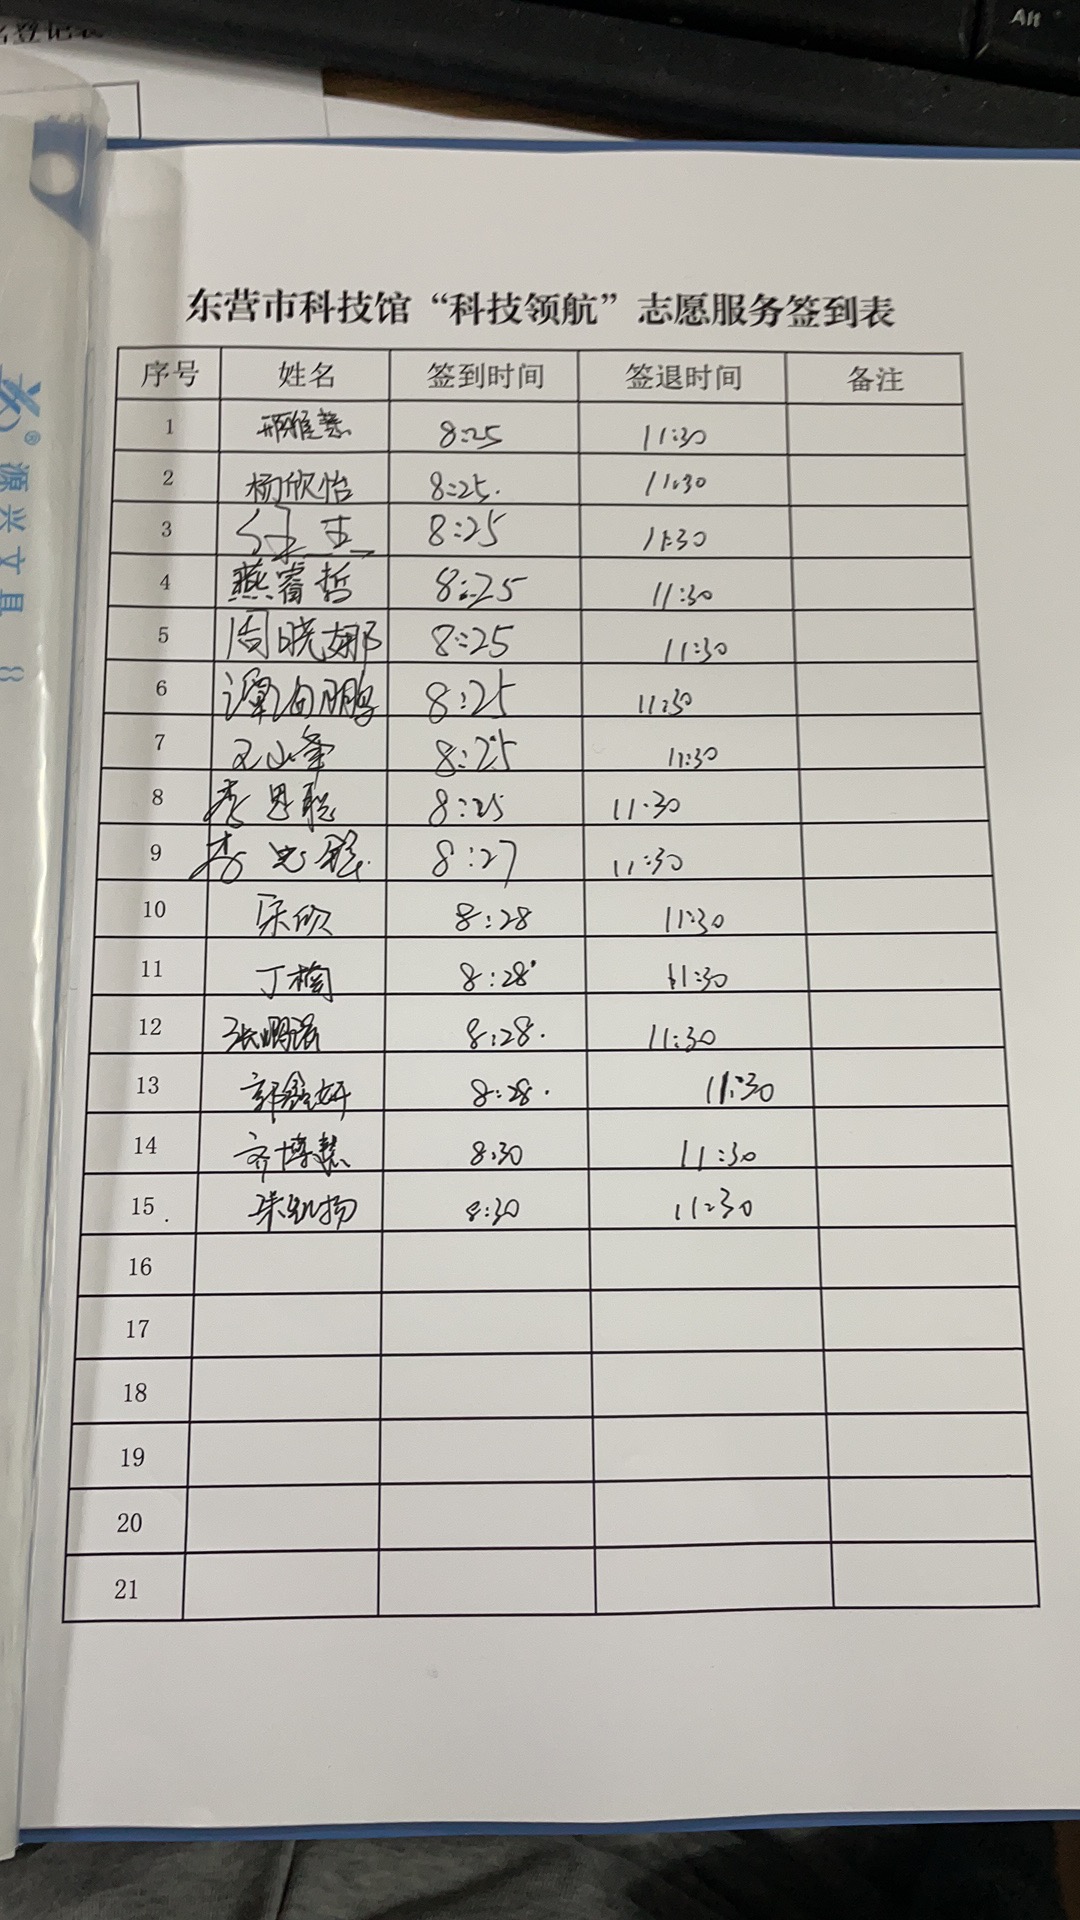 Alt
名登记表
源兴文具
东营市科技馆“科技领航”志愿服务签到表
序号 姓名 签到时间 签退时间 备注
1 邢雅慧 8:25 11:30
2 杨欣怡 8:25. 11:30
3 8:25 11:30
4 燕睿哲 8:25 11:30
5 周晓娜 8:25 11:30
6 谭向鹏 8:25 11:30
7 8:25 11:30
8 李思聪 8:25 11:30
9 李 8:27 11:30
10 宋欣 8:28 11:30
11 丁楠 8:28 11:30
12 张 8:28. 11:30
13 郭鑫妍 8:28. 11:30
14 齐博慧 8:30 11:30
15 8:30 11:30
16
17
18
19
20
21